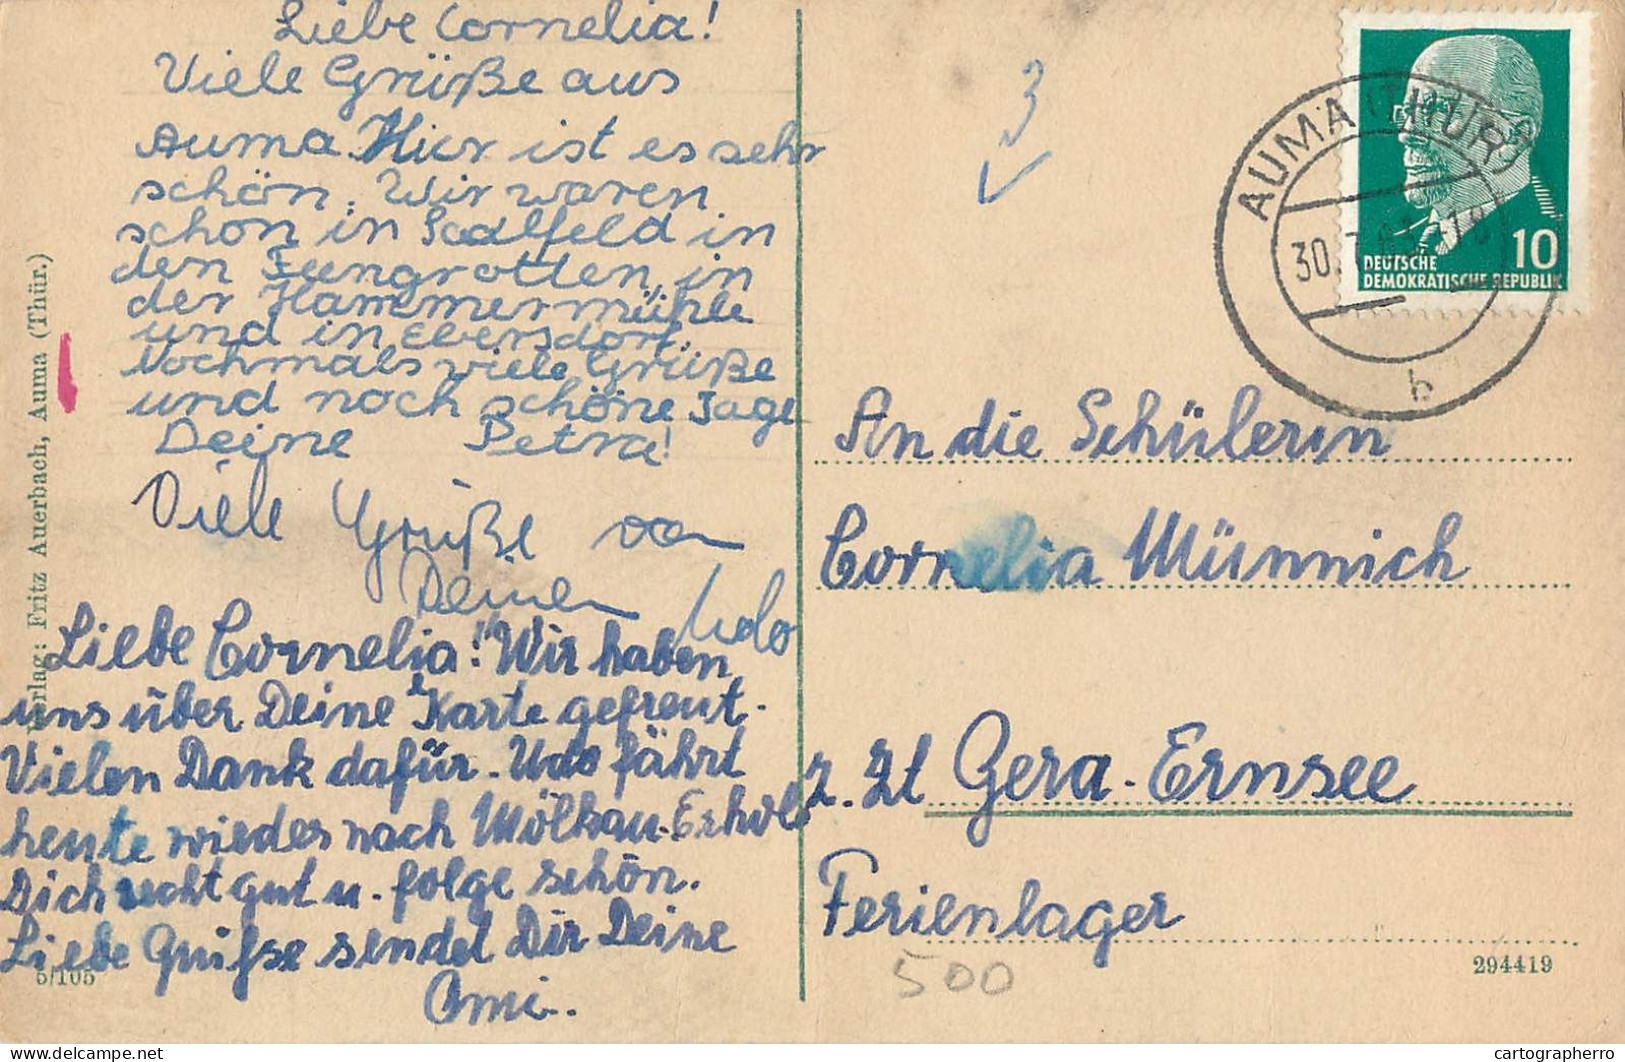 Liebe Cornelia!
Viele Grüße aus
Auma Hier ist es sehr
schön. Wir waren
schon in Saalfeld in
den Feengrotten, in
der Hammermühle
und in Ebersdorf.
Nochmals viele Grüße
und noch schöne Tage
Deine Petra!
Viele Grüße von
Deinen Udo
Liebe Cornelia! Wir haben
uns über Deine Karte gefreut.
Vielen Dank dafür. Udo fährt
heute wieder nach Mölkau. Erhol
Dich recht gut u. folge schön.
Liebe Grüße sendet Dir Deine
Omi.
Verlag: Fritz Auerbach, Auma (Thür.)
5/105
3
AUMA (THÜR)
30.
b
10
DEUTSCHE
DEMOKRATISCHE REPUBLIK
An die Schülerin
Cornelia Münnich
z. Zt Gera-Ernsee
Ferienlager
500
294419
www.delcampe.net
cartographerro